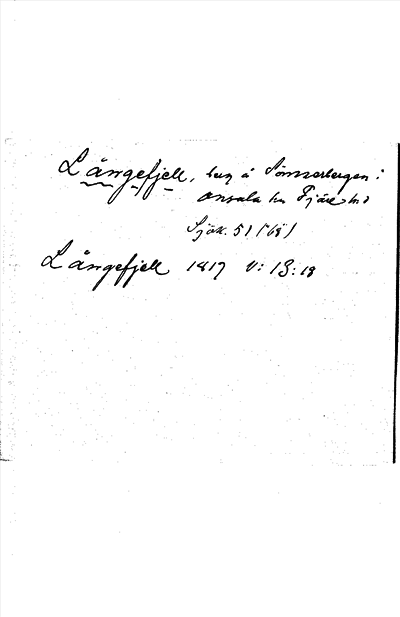 Långefjell, berg å Sönnerbergen i
Onsala sn Fjäre hd
Sjök. 51 (68)
Långefjell 1817 V: 13: 18